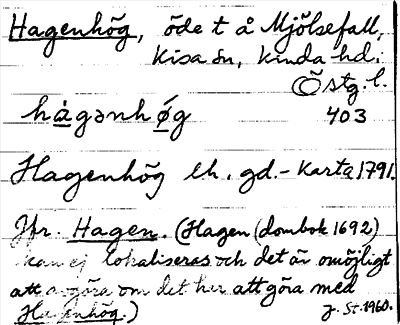 Hagenhög, öde t å Mjölsefall,
Kisa sn, Kinda hd;
Östg. l.
hàgənhǿg 403
Hagenhög lh. gd. - Karta 1791.
Jfr. Hagen. (Hagen (dombok 1692)
kan ej lokaliseras och det är omöjligt
att avgöra om det har att göra med
Hagenhög.) J. St. 1960.